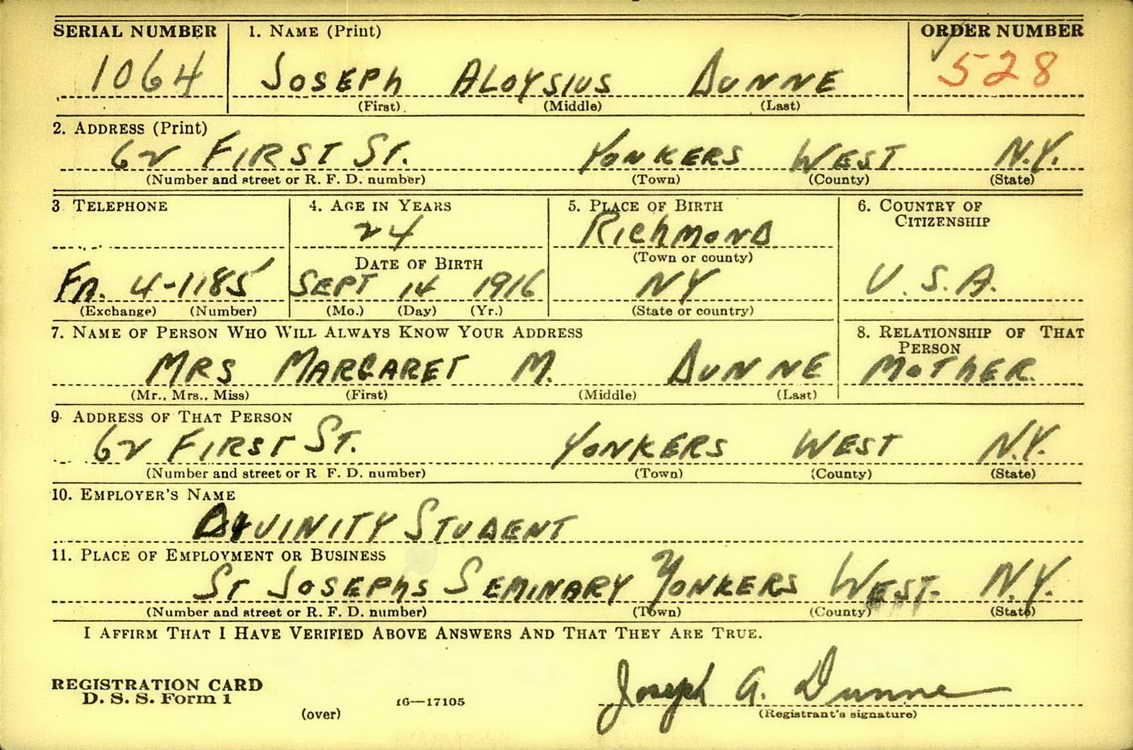 SERIAL NUMBER 1. NAME (Print) ORDER NUMBER
1064 JOSEPH ALOYSIUS DUNNE 528
(First) (Middle) (Last)
2. ADDRESS (Print)
62 FIRST ST. YONKERS WEST N.Y.
(Number and street or R. F. D. number) (Town) (County) (State)
3 TELEPHONE 4. AGE IN YEARS 5. PLACE OF BIRTH 6. COUNTRY OF CITIZENSHIP
24 RICHMOND
DATE OF BIRTH (Town or county)
FA. 4-1185 SEPT 14 1916 NY U.S.A.
(Exchange) (Number) (Mo.) (Day) (Yr.) (State or country)
7. NAME OF PERSON WHO WILL ALWAYS KNOW YOUR ADDRESS 8. RELATIONSHIP OF THAT PERSON
MRS MARGARET M. DUNNE MOTHER
(Mr., Mrs., Miss) (First) (Middle) (Last)
9. ADDRESS OF THAT PERSON
62 FIRST ST. YONKERS WEST N.Y.
(Number and street or R F. D. number) (Town) (County) (State)
10. EMPLOYER'S NAME
DIVINITY STUDENT
11. PLACE OF EMPLOYMENT OR BUSINESS
ST JOSEPHS SEMINARY YONKERS WEST. N.Y.
(Number and street or R. F. D. number) (Town) (County) (State)
I AFFIRM THAT I HAVE VERIFIED ABOVE ANSWERS AND THAT THEY ARE TRUE.
REGISTRATION CARD Joseph A. Dunne
D. S. S. Form 1 16—17105 (Registrant's signature)
(over)